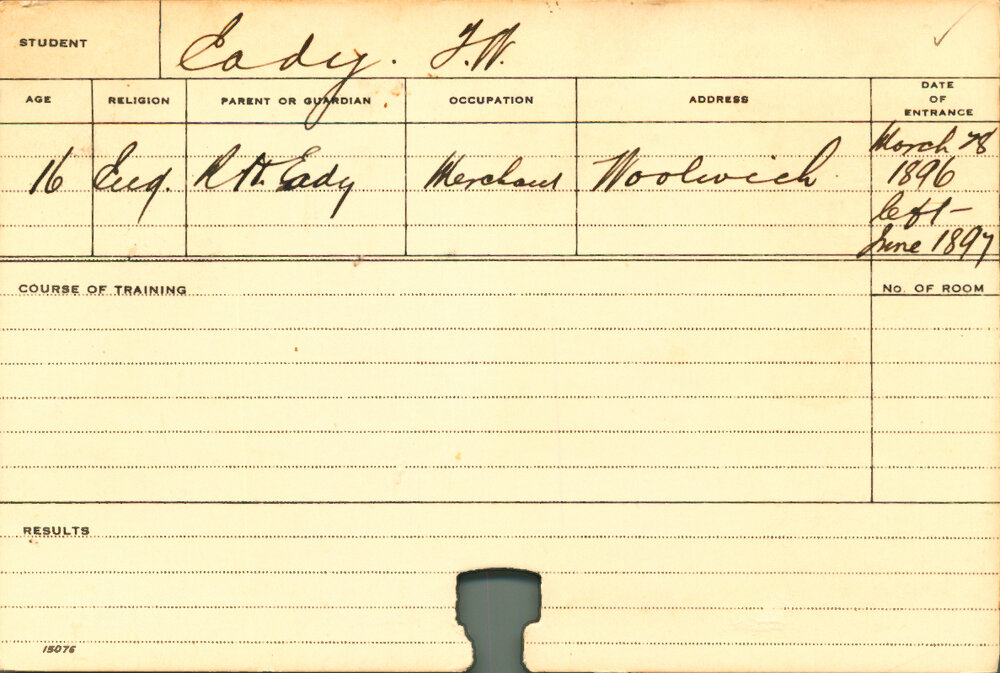 STUDENT Eady. F.W.
AGE RELIGION PARENT OR GUARDIAN OCCUPATION ADDRESS DATE OF ENTRANCE
16 Eng. R H. Eady Merchant Woolwich March 28
1896
left
June 1897
COURSE OF TRAINING No. OF ROOM
RESULTS
15076